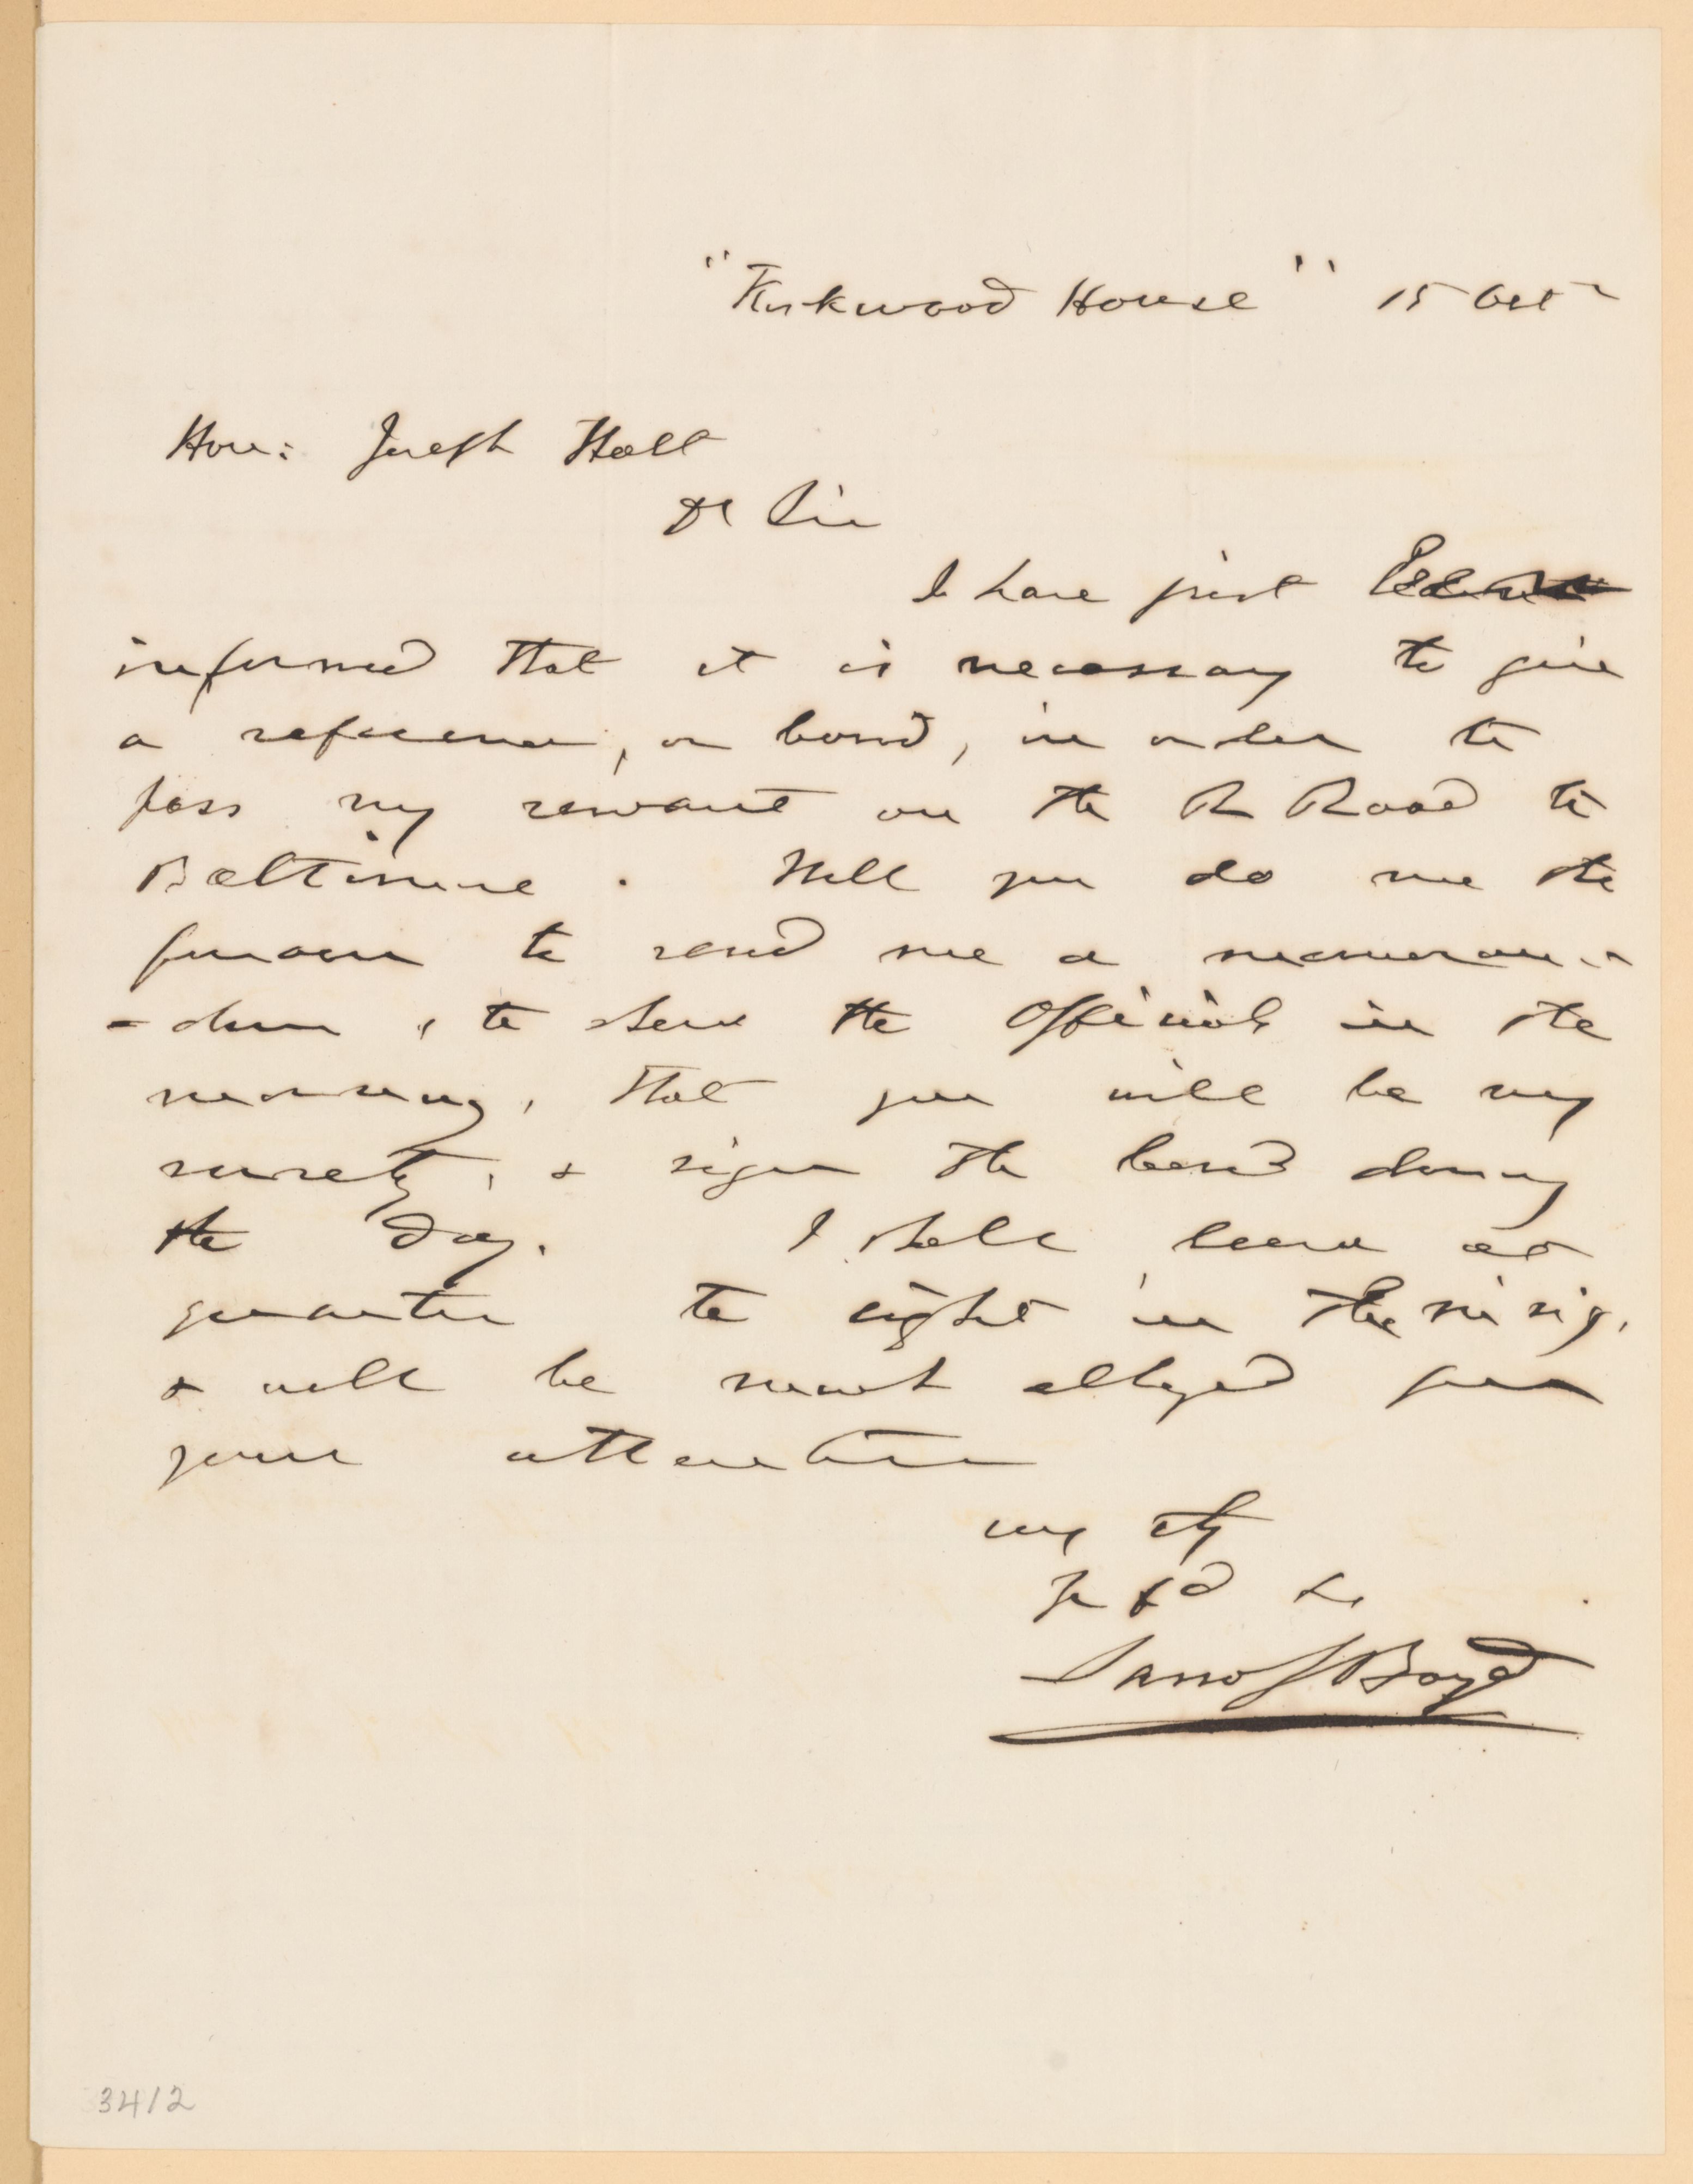 "Kirkwood House" 15 Oct
Hon: Joseph Holt
Dr Sir
I have just
informed that it is necessary to give
a reference, or bond, in order to
pass my servant on the R Road to
Baltimore. Will you do me the
favour to send me a memoran-
-dum, to show the Officials in the
morning, that you will be my
surety, & sign the bond during
the day. I shall leave at
quarter to eight in the
& will be much obliged for
your attention
very
Yr
Jamo S Boyd
3412